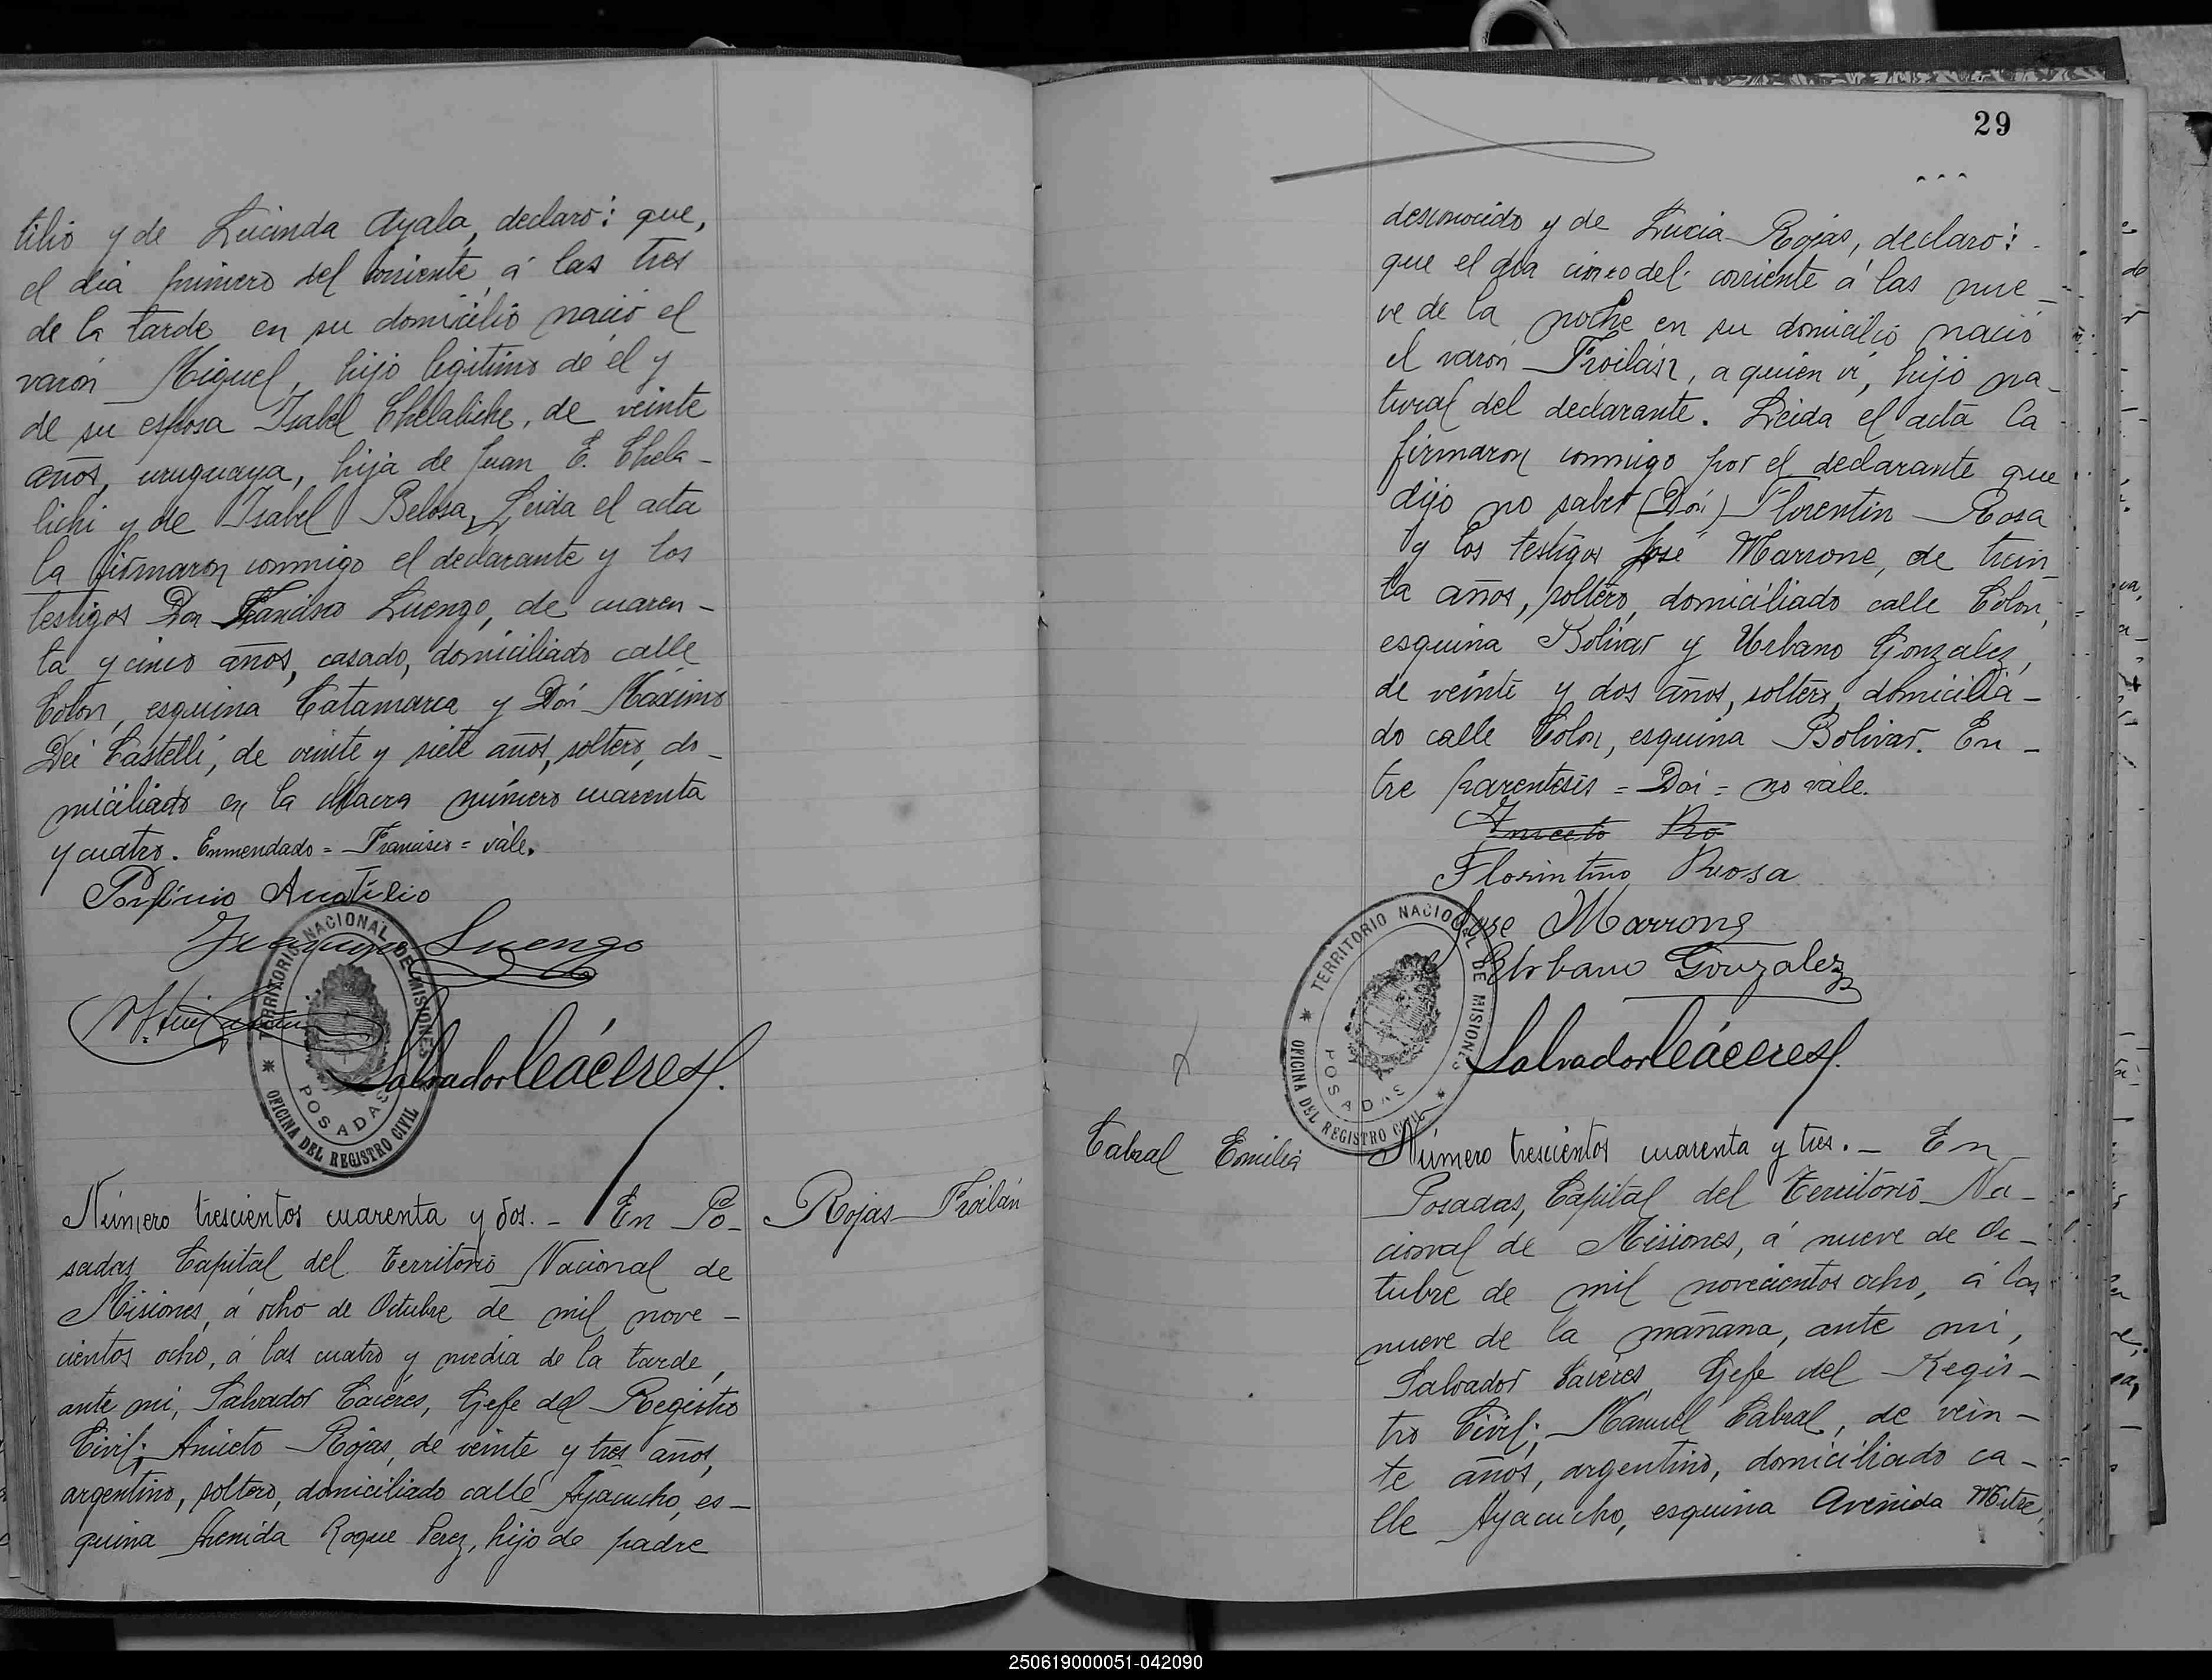 tilio y de Lucinda Ayala, declaró: que,
el dia primero del corriente, á las tres
de la tarde en su domicilio nació el
varón Miguel, hijo legitimo de él y
de su esposa Isabel Chelaliche, de veinte
años, uruguaya, hija de Juan E. Chela-
lichi y de Isabel Belosa, Leida el acta
la firmaron conmigo el declarante y los
testigos Don Francisco Luengo, de cuaren-
ta y cinco años, casado, domiciliado calle
Colon, esquina Catamarca y Don Máximo
Dei Castelli, de veinte y siete años, soltero, do-
miciliado en la chacra número cuarenta
y cuatro. Enmendado = Francisco = vále.
Porfirio Anatilio
Francisco Luengo
TERRITORIO NACIONAL DE MISIONES
POSADAS
OFICINA DEL REGISTRO CIVIL
Salvador Cáceres
Número trescientos cuarenta y dos. - En Po-
sadas, Capital del Territorio Nacional de
Misiones, á ocho de Octubre de mil nove-
cientos ocho, á las cuatro y media de la tarde,
ante mi, Salvador Cáceres, Gefe del Registro
Civil; Aniceto Rojas, de veinte y tres años,
argentino, soltero, domiciliado calle Ayacucho, es-
quina Avenida Roque Perez, hijo de padre
Rojas Froilán
29
desconocido y de Lucia Rojas, declaró:
que el dia cinco del corriente á las nue-
ve de la noche en su domicilio nació
el varón Froilán, a quien vi, hijo na-
tural del declarante. Leida el acta la
firmaron conmigo por el declarante que
dijo no saber (Don) Florentin Rosa
y los testigos José Marrone, de trein
ta años, soltero, domiciliado calle Colon,
esquina Bolivar y Urbano Gonzalez,
de veinte y dos años, soltero, domicilia-
do calle Colon, esquina Bolivar. En-
tre parentesis = Don = no vále.
Aniceto Ro
Florintino Rrosa
Jose Marrone
Urbano Gonzalez
TERRITORIO NACIONAL DE MISIONES
POSADAS
OFICINA DEL REGISTRO CIVIL
Salvador Cáceres
Cabral Emilia
Número trescientos cuarenta y tres. - En
Posadas, Capital del Territorio Na-
cional de Misiones, á nueve de Oc-
tubre de mil novecientos ocho, á las
nueve de la mañana, ante mi,
Salvador Cáceres, Gefe del Regis-
tro Civil; Manuel Cabral, de vein-
te años, argentino, domiciliado ca-
lle Ayacucho, esquina Avenida Mitre,
250619000051-042090